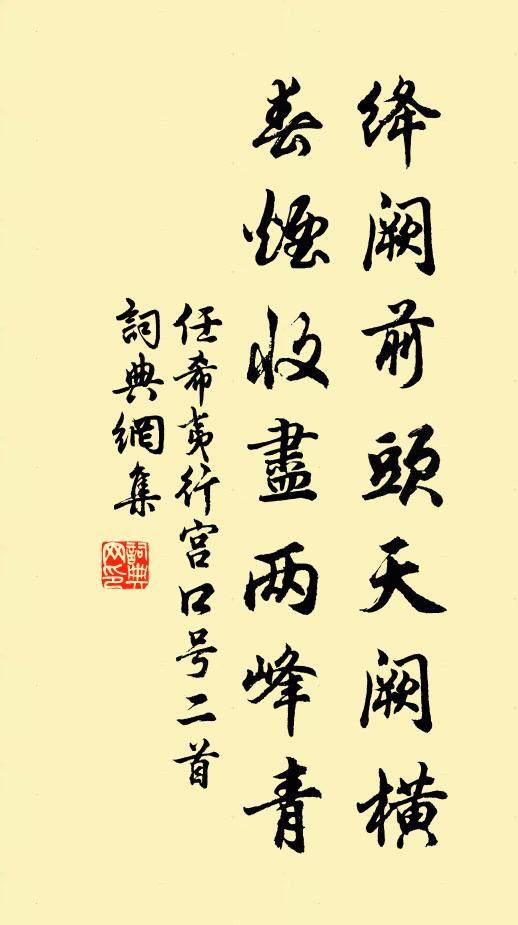 绛阙前头天阙横
春煙收盡两峰青
任希夷行宫口号二首
詞典網集
詞典网印